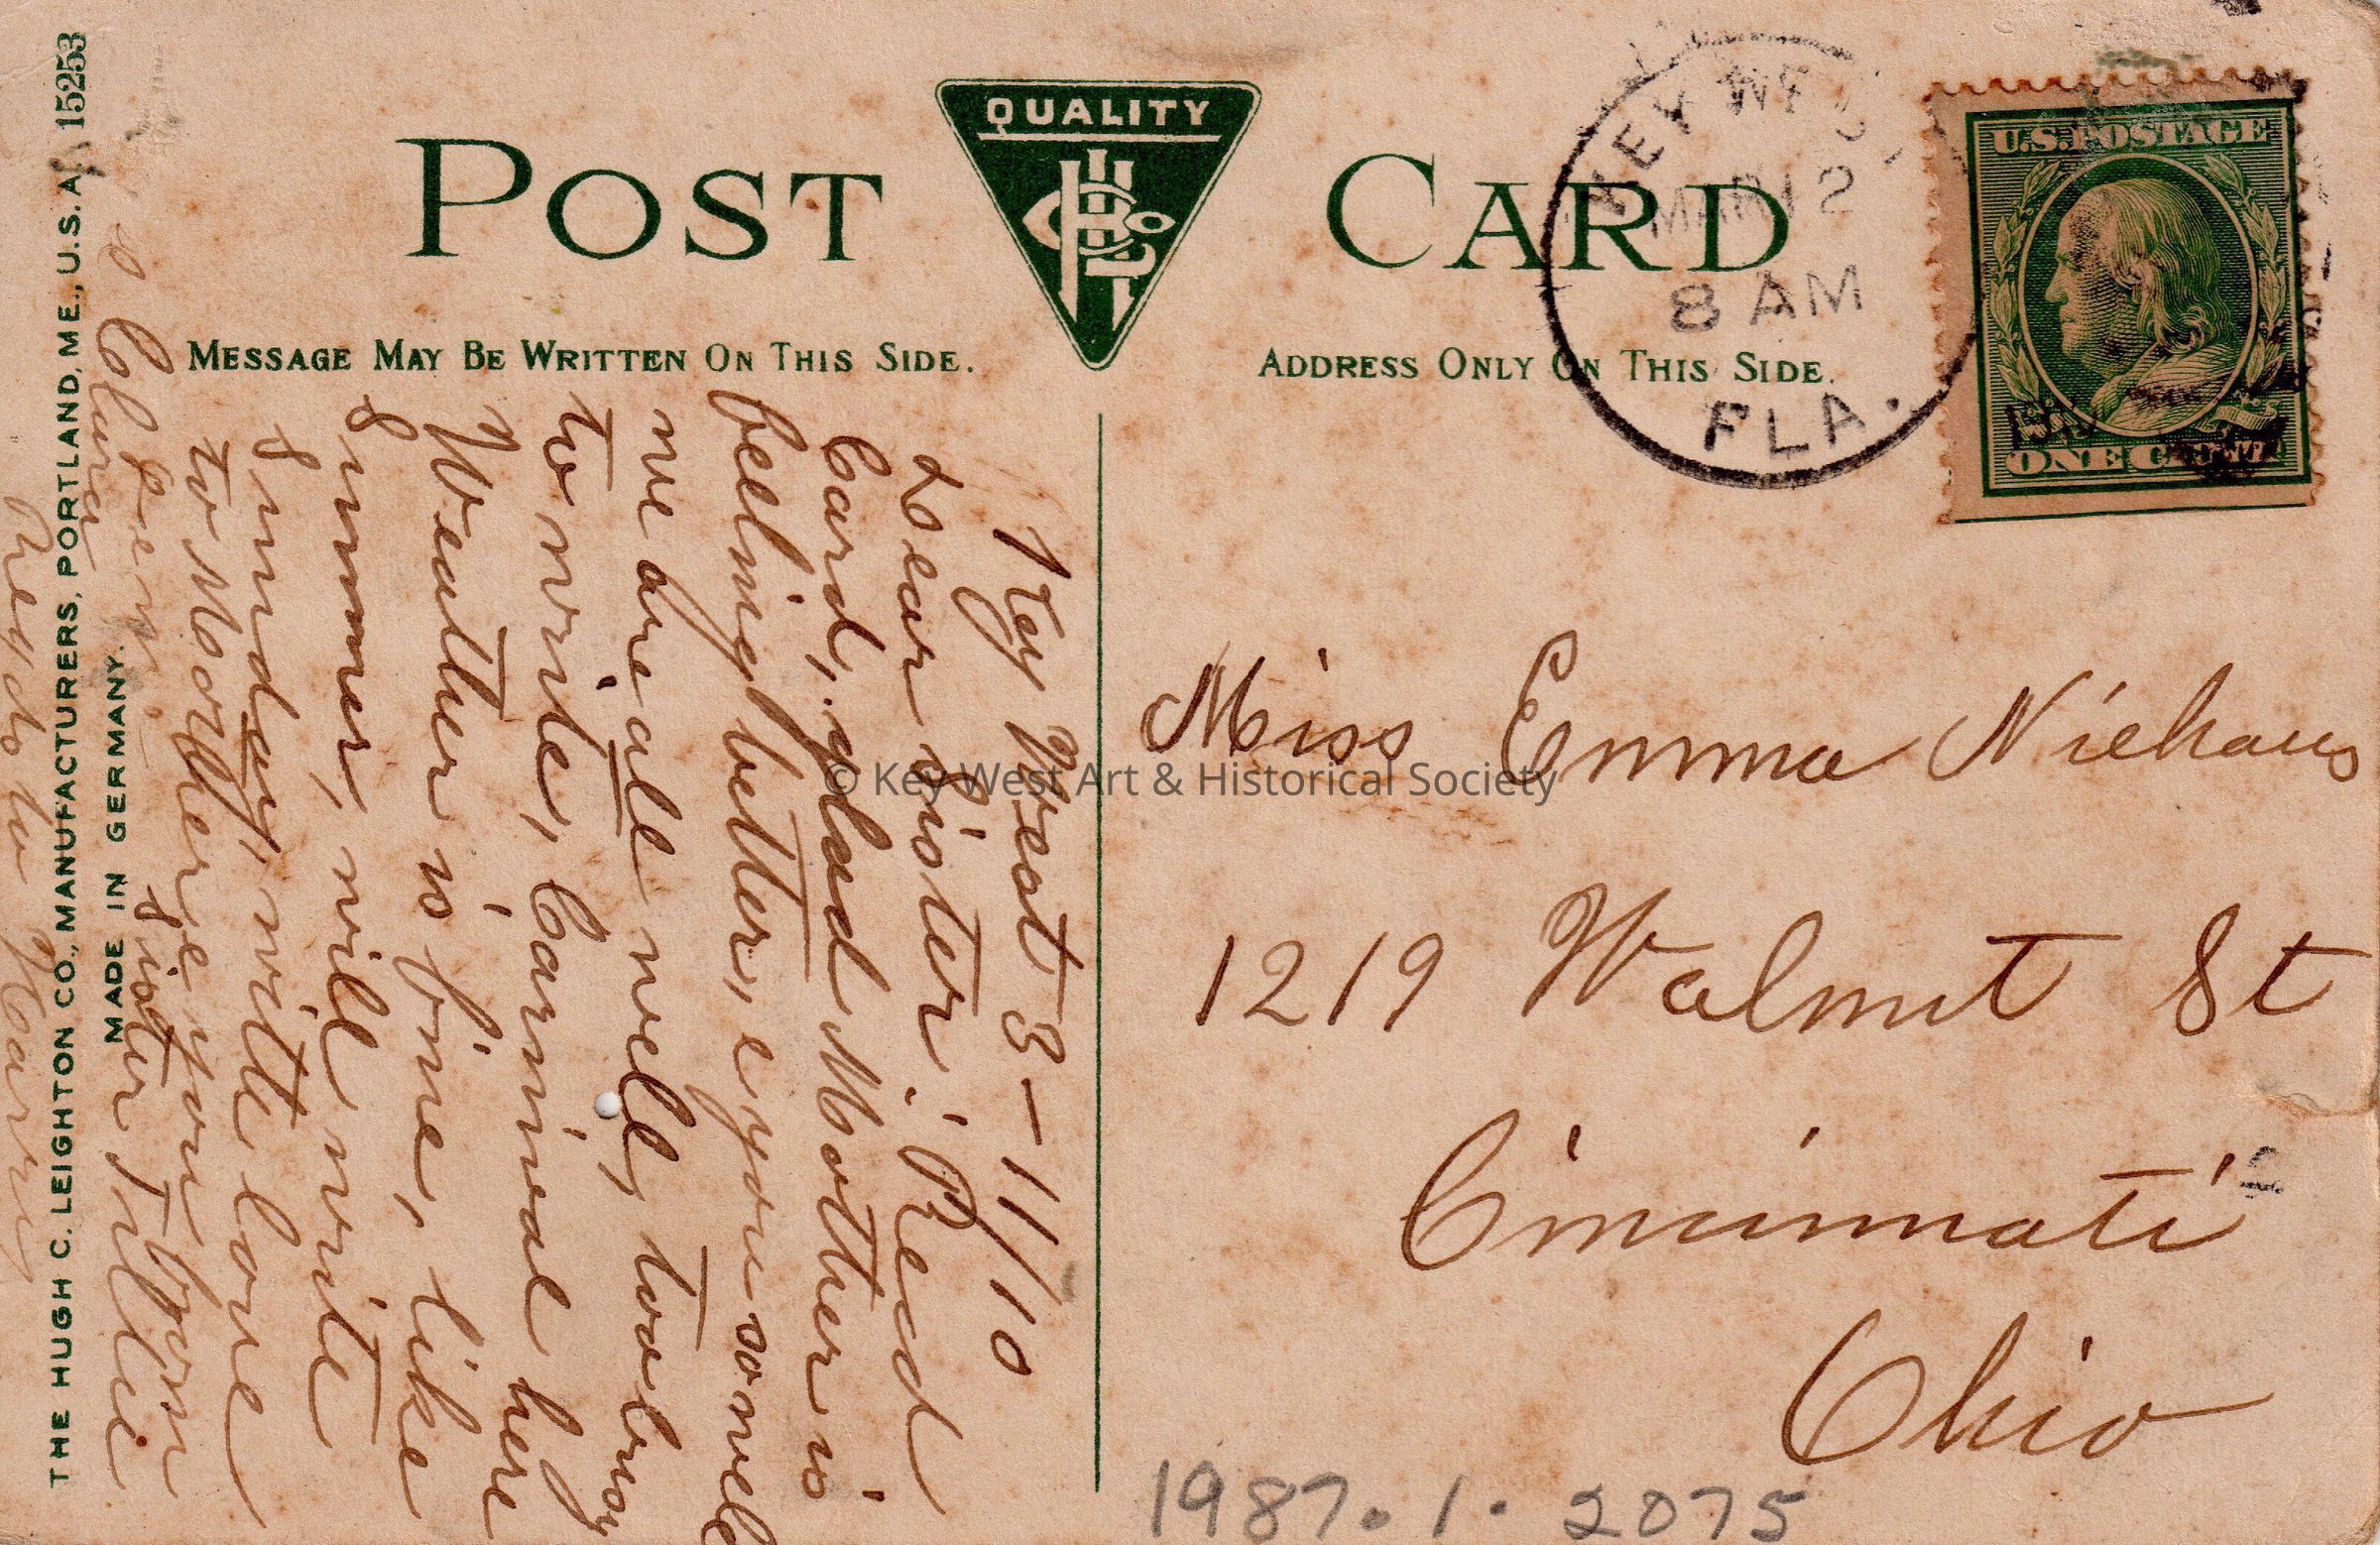 POST CARD
QUALITY
MESSAGE MAY BE WRITTEN ON THIS SIDE.
ADDRESS ONLY ON THIS SIDE.
KEY WEST
MAR 12
8 AM
1910
FLA.
U.S. POSTAGE
ONE CENT
Key West 3-11/10
Dear Sister: Recd
Card, glad Mother is
feeling better, & you so well
we are all well, too busy
to write, Carnival here
Weather is fine, like
Summer, will write
Sunday, with love
to Mother & you from
Sister Tillie
Clem
Clara
Regards to Harry
Miss Emma Niehaus
1219 Walnut St
Cincinnati
Ohio
1987.1.2075
THE HUGH C. LEIGHTON CO., MANUFACTURERS, PORTLAND, ME., U.S.A. 15253
MADE IN GERMANY.
© Key West Art & Historical Society